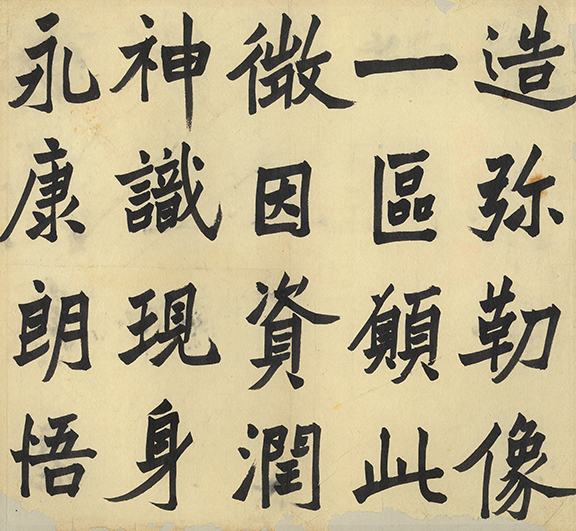 造弥勒像
一區願此
微因資潤
神識現身
永康朗悟